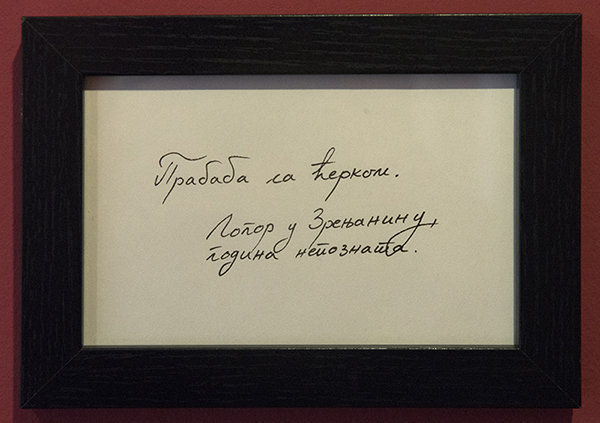 Прабаба са ћерком.
Логор у Зрењанину,
година непозната.